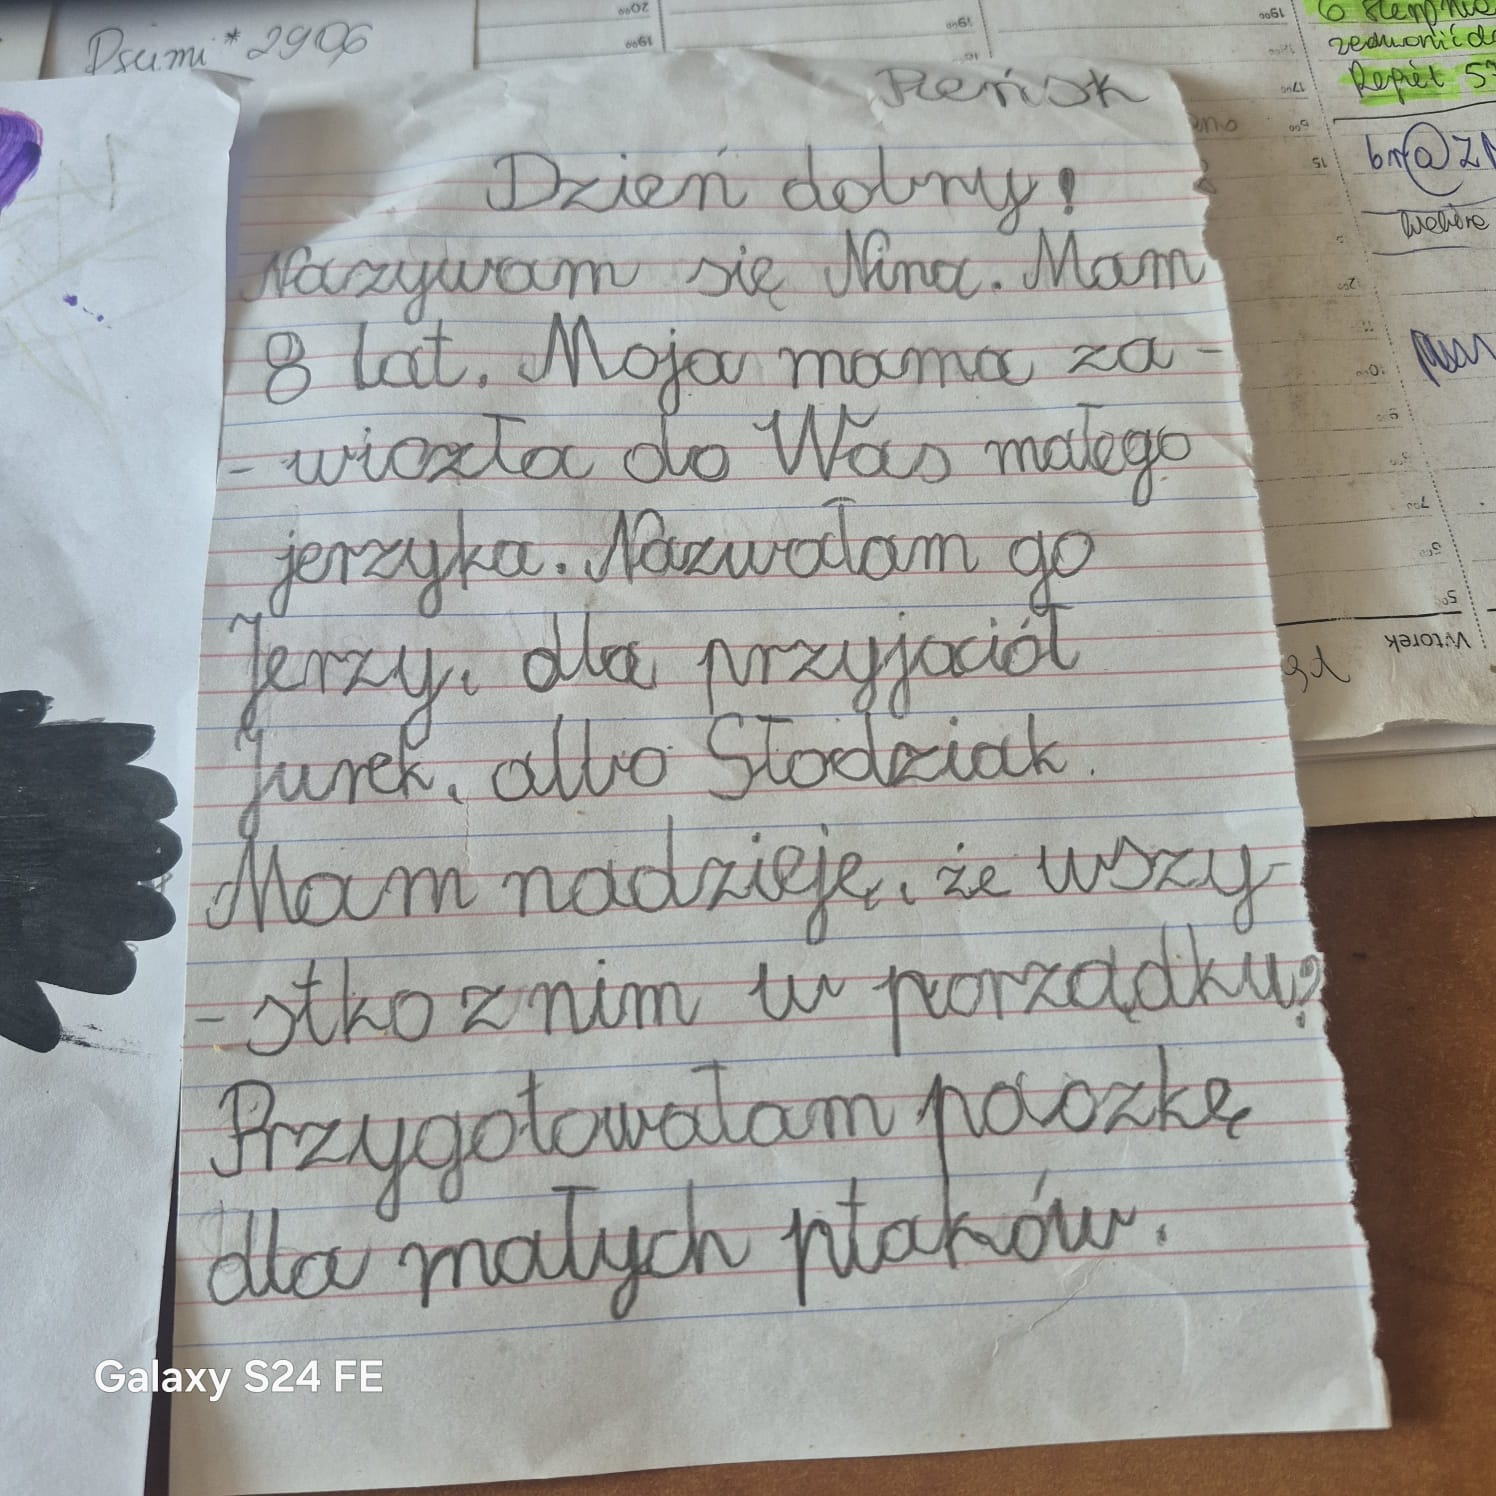 Psumi * 2906
6 sierpnia
Pieńsk
Dzień dobry!
Nazywam się Nina. Mam
8 lat. Moja mama za-
-wiozła do Was małego
jerzyka. Nazwałam go
Jerzy, dla przyjaciół
Jurek, albo Słodziak.
Mam nadzieję, że wszy-
-stko z nim w porządku?
Przygotowałam paczkę
dla małych ptaków.
Wtorek
Galaxy S24 FE